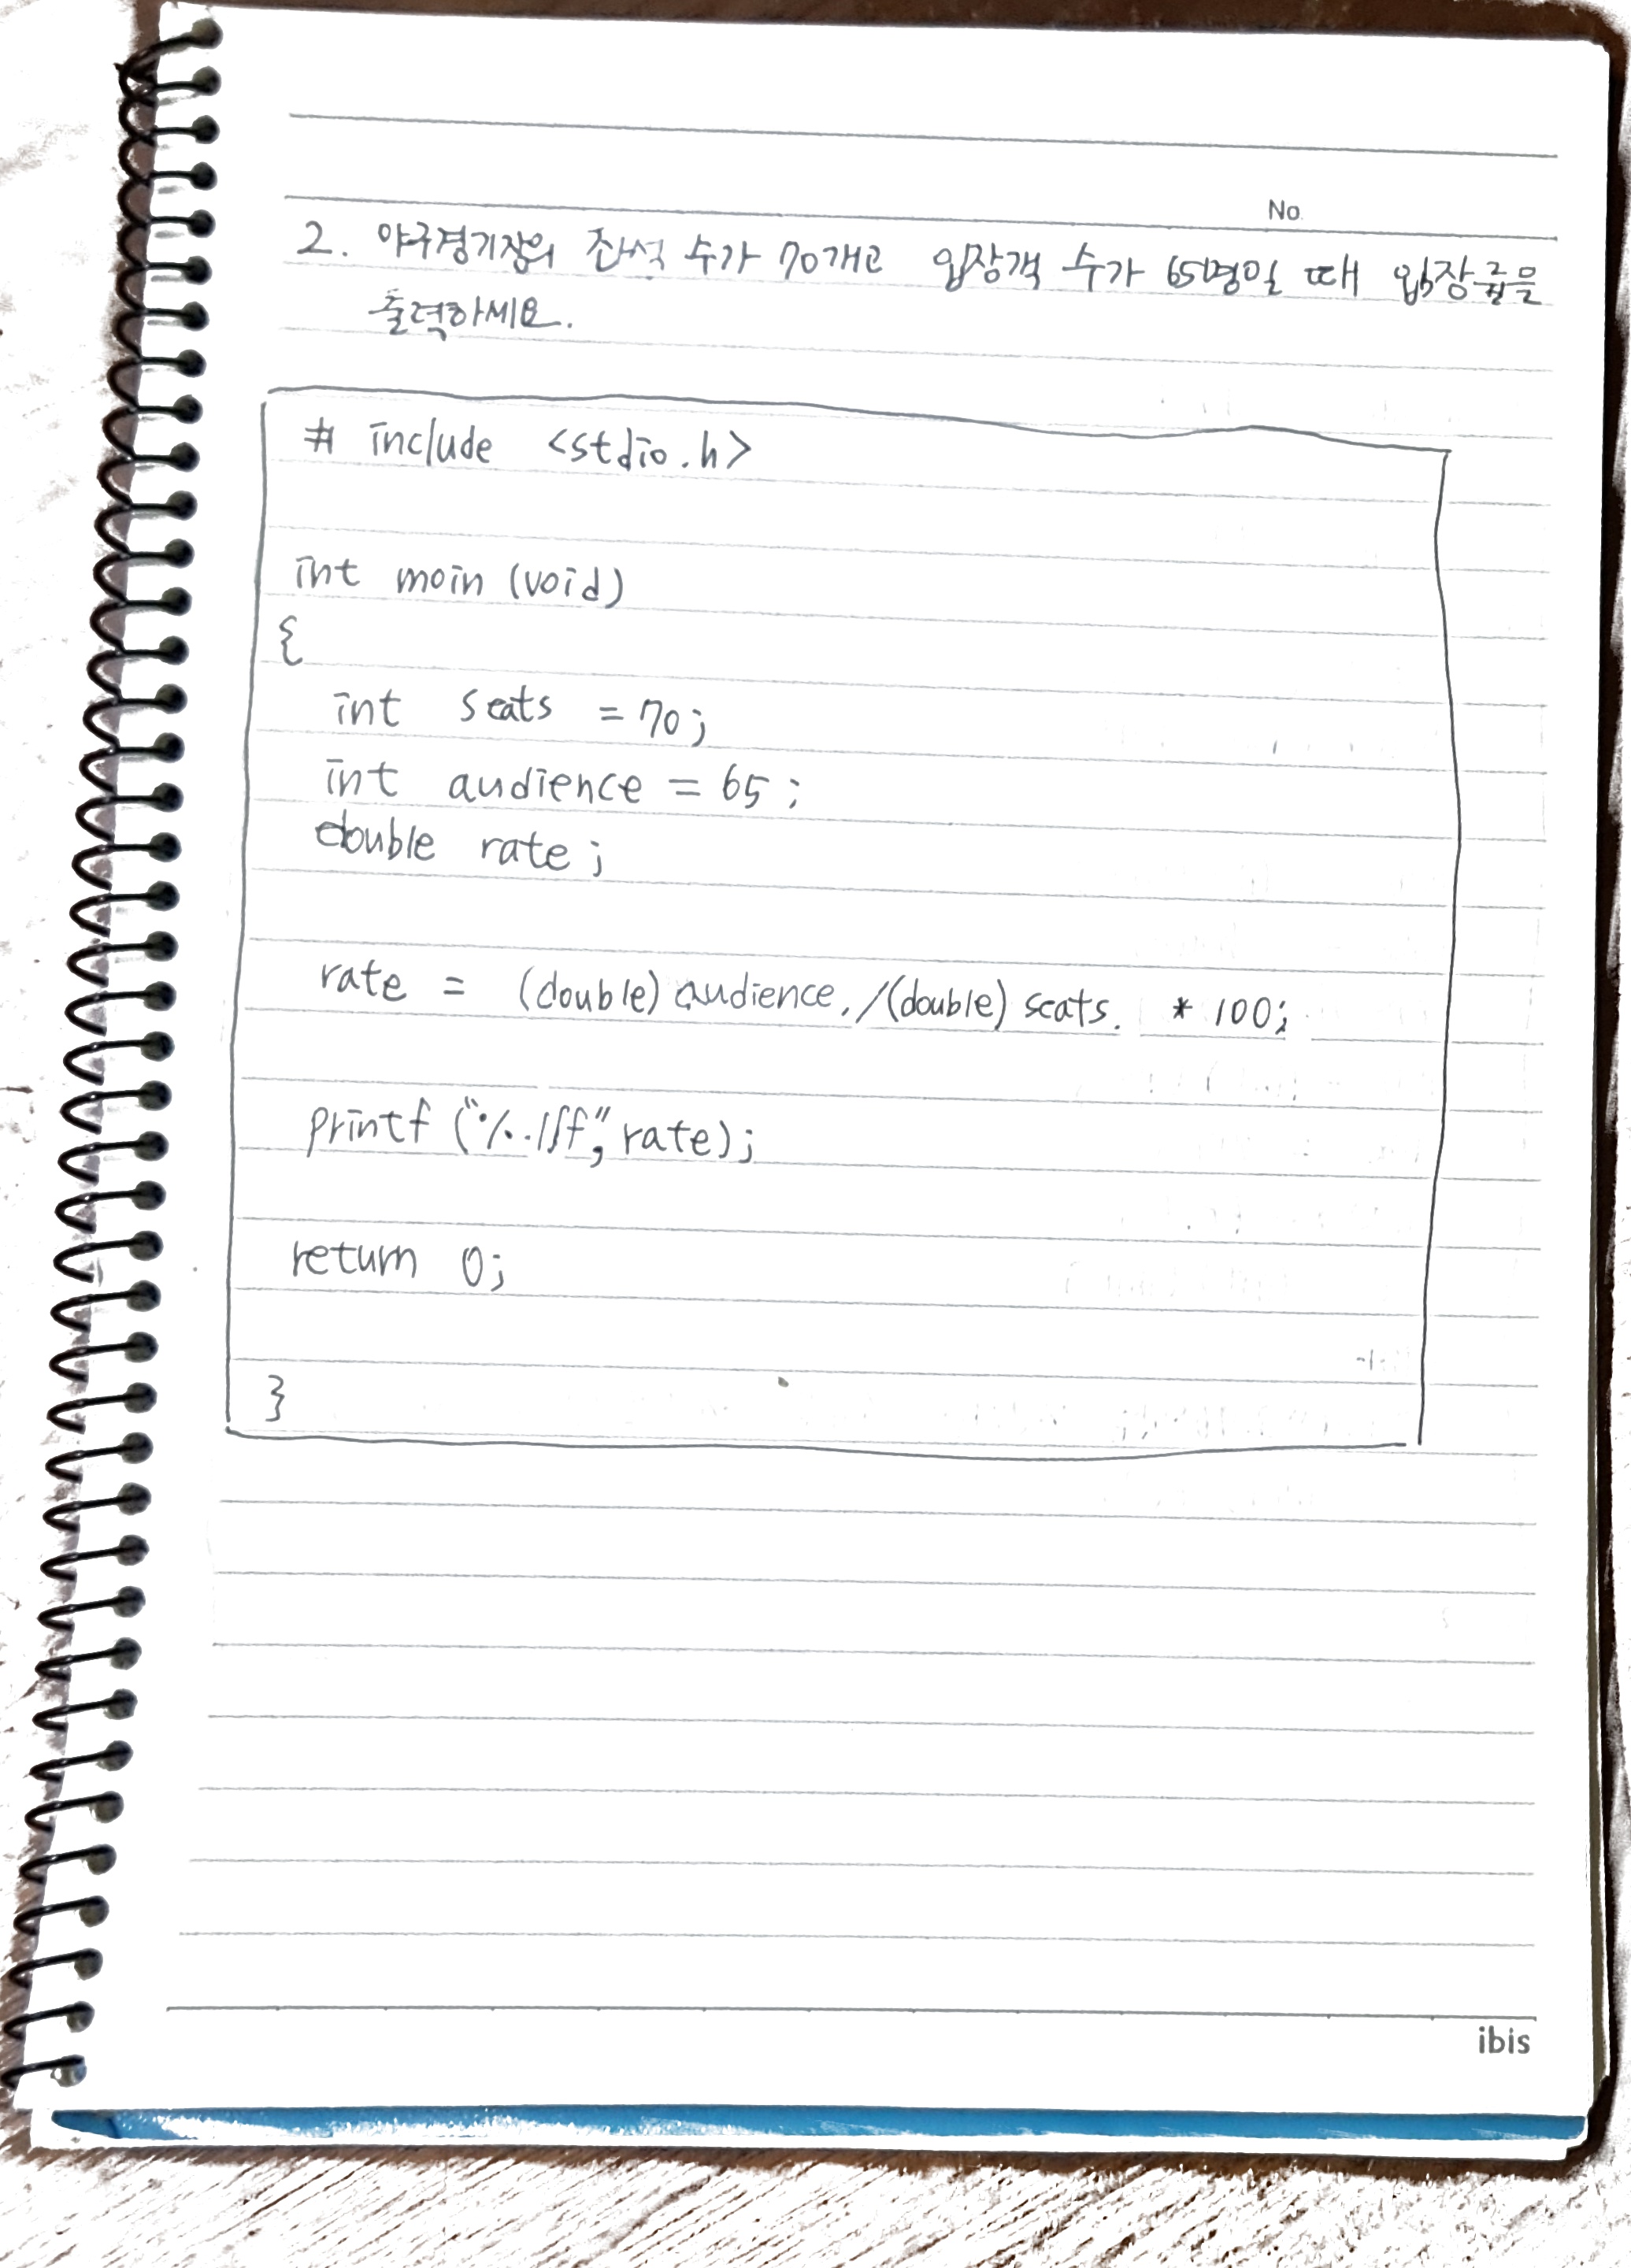 No.
2. 야구경기장의 좌석 수가 70개고 입장객 수가 65명일 때 입장률을
출력하세요.
# include <stdio.h>
int main (void)
{
int seats = 70;
int audience = 65;
double rate;
rate = (double) audience / (double) seats * 100;
printf ("%.1lf", rate);
return 0;
}
ibis